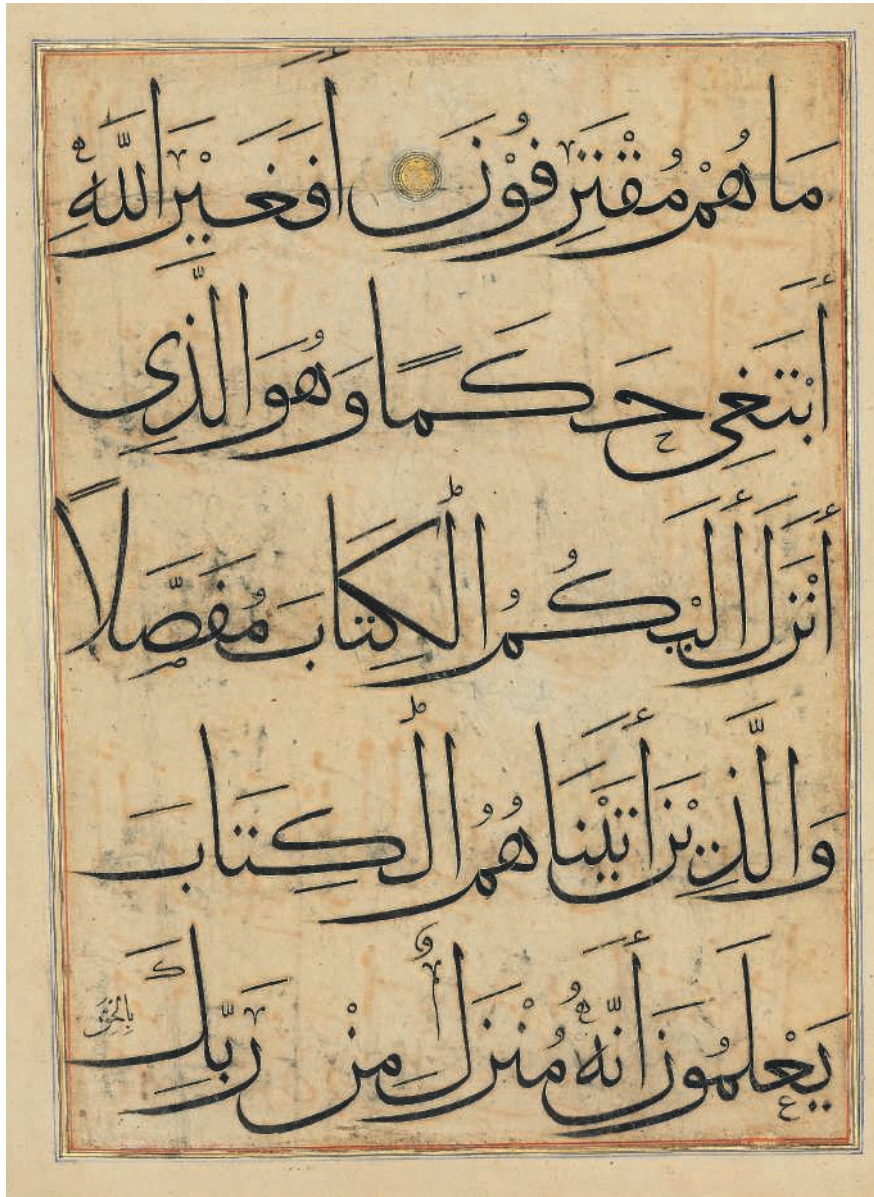 مَا هُمْ مُقْتَرِفُوْنَ أَفَغَيْرَ اللّٰهِ
أَبْتَغِى حَكَمًا وَهُوَ الَّذِى
أَنْزَلَ أَلَيْكُمُ الْكِتَابَ مُفَصَّلًا
وَالَّذِيْنَ أَتَيْنَاهُمُ الْكِتَابَ
يَعْلَمُوْنَ أَنَّهُ مُنْزَلٌ مِنْ رَبِّكَ
بِالْحَقِّ